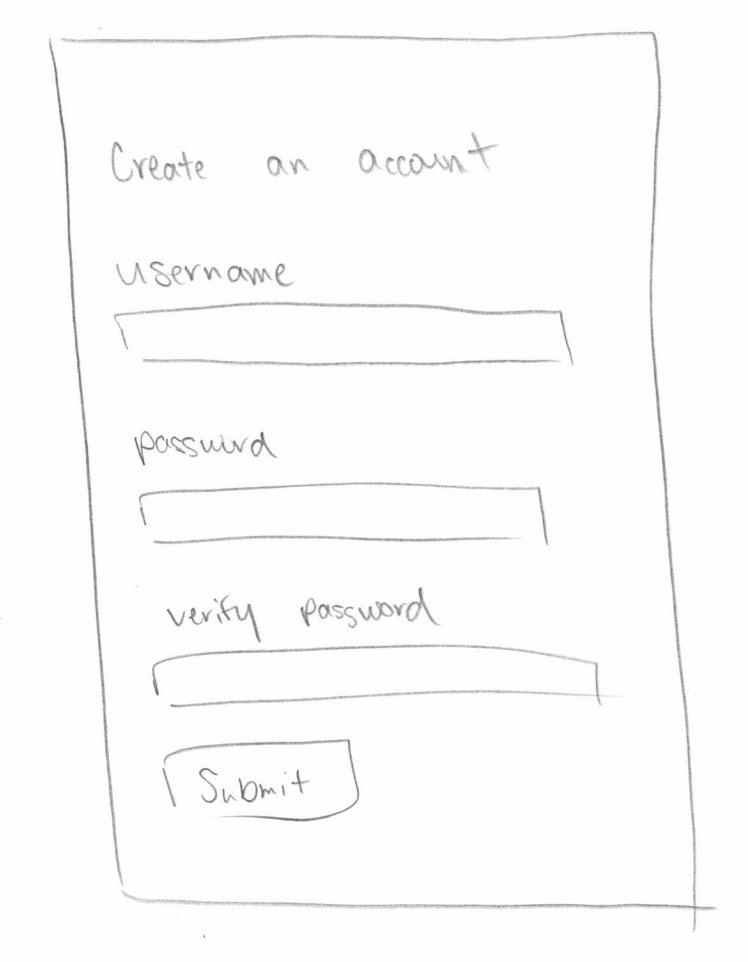 Create an account
username
password
verify password
Submit